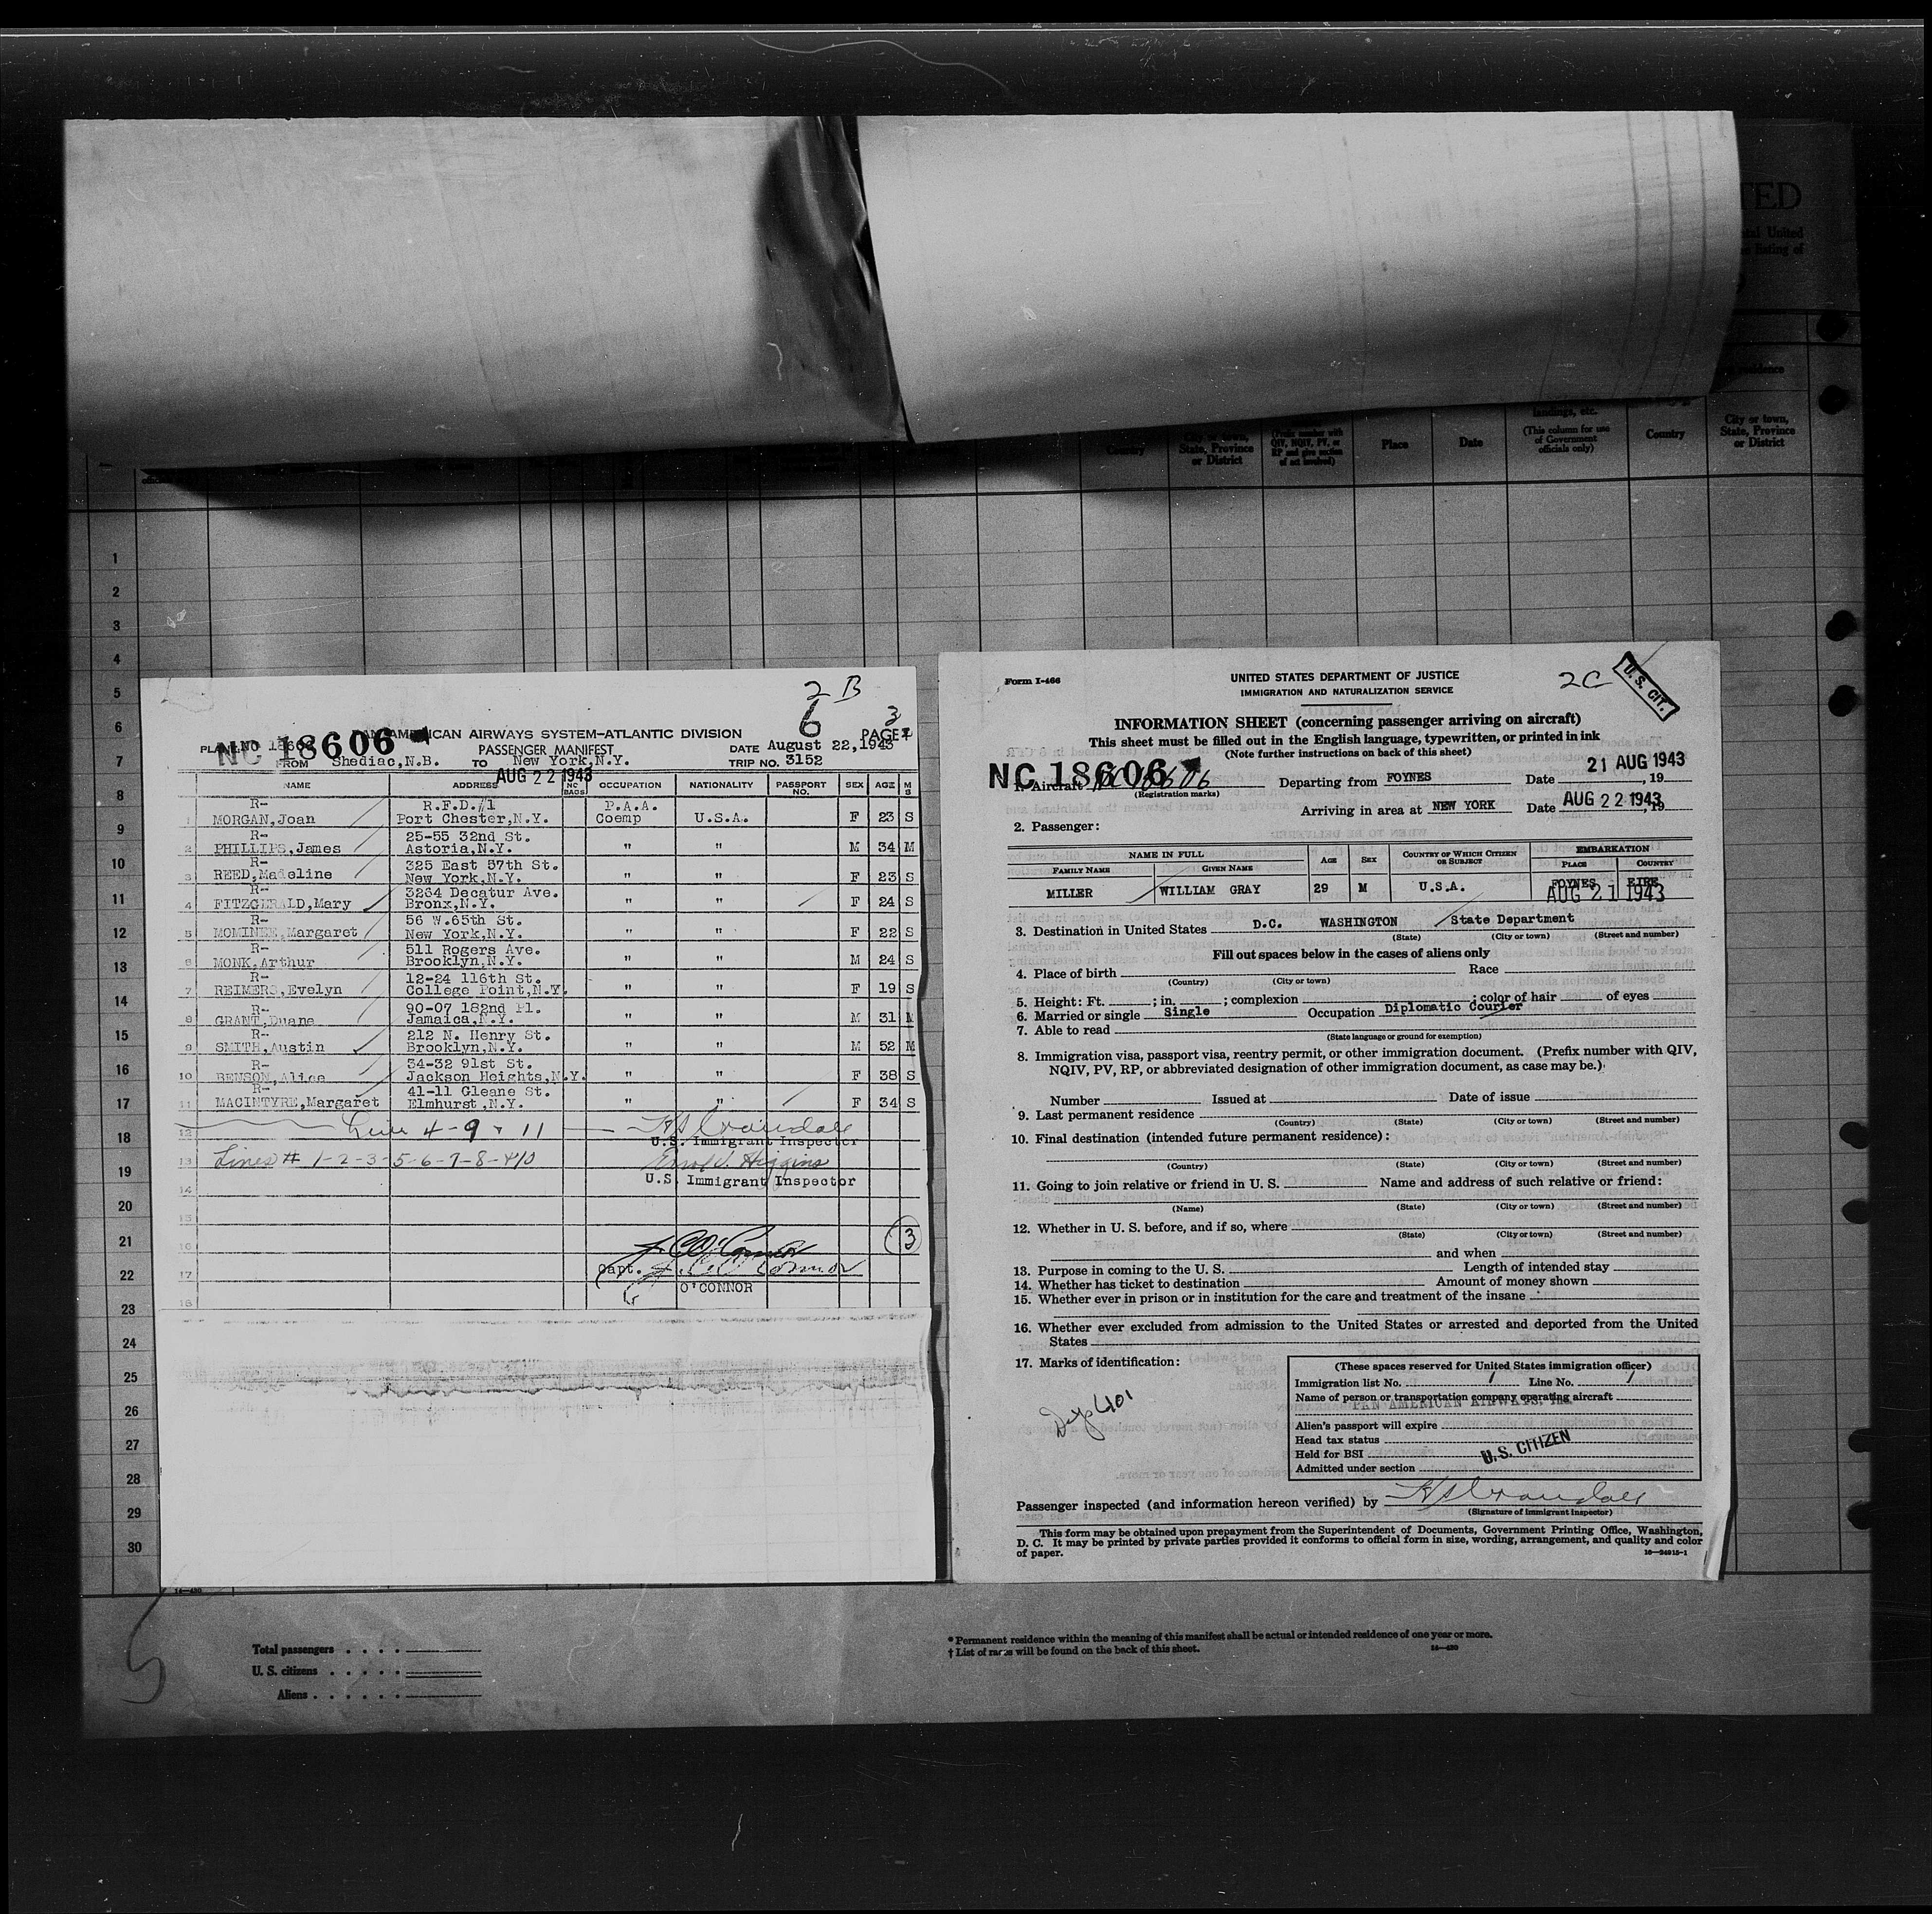 TED
landings, etc.
City or town, State, Province or District
(Prefix number with QIV, NQIV, PV, or RP and give section of act involved)
Place
Date
(This column for use of Government officials only)
Country
City or town, State, Province or District
1
2
3
4
5
6
7
8
9
10
11
12
13
14
15
16
17
18
19
20
21
22
23
24
25
26
27
28
29
30
2 B
6
3
AMERICAN AIRWAYS SYSTEM-ATLANTIC DIVISION
PAGE
NC 18606
PASSENGER MANIFEST
DATE August 22,1943
FROM Shediac,N.B. TO New York,N.Y.
TRIP NO. 3152
AUG 22 1943
NAME ADDRESS NC BAGS OCCUPATION NATIONALITY PASSPORT NO. SEX AGE M S
R- R.F.D.#1 P.A.A.
1 MORGAN,Joan Port Chester,N.Y. Coemp U.S.A. F 23 S
R- 25-55 32nd St.
2 PHILLIPS,James Astoria,N.Y. " " M 34 M
R- 325 East 57th St.
3 REED,Madeline New York,N.Y. " " F 23 S
R- 3264 Decatur Ave.
4 FITZGERALD,Mary Bronx,N.Y. " " F 24 S
R- 56 W.65th St.
5 MOMINEE,Margaret New York,N.Y. " " F 22 S
R- 511 Rogers Ave.
6 MONK,Arthur Brooklyn,N.Y. " " M 24 S
R- 12-24 116th St.
7 REIMERS,Evelyn College Point,N.Y. " " F 19 S
R- 90-07 182nd Pl.
8 GRANT,Duane Jamaica,N.Y. " " M 31 M
R- 212 N. Henry St.
9 SMITH,Austin Brooklyn,N.Y. " " M 52 M
R- 34-32 91st St.
10 BENSON,Alice Jackson Heights,N.Y. " " F 38 S
R- 41-11 Gleane St.
11 MACINTYRE,Margaret Elmhurst,N.Y. " " F 34 S
12 Line 4-9 & 11
U.S. Immigrant Inspector
13 Lines # 1-2-3-5-6-7-8-&10
U.S. Immigrant Inspector
14
15
16 3
17 Capt. J. C. O'Connor
O'CONNOR
18
Form I-466
UNITED STATES DEPARTMENT OF JUSTICE
IMMIGRATION AND NATURALIZATION SERVICE
2C
U. S. CIT.
INFORMATION SHEET (concerning passenger arriving on aircraft)
This sheet must be filled out in the English language, typewritten, or printed in ink
(Note further instructions on back of this sheet)
NC 18606
1. Aircraft NC 18606 Departing from FOYNES Date 21 AUG 1943, 19
(Registration marks)
Arriving in area at NEW YORK Date AUG 22 1943, 19
2. Passenger:
NAME IN FULL AGE SEX COUNTRY OF WHICH CITIZEN OR SUBJECT EMBARKATION
FAMILY NAME GIVEN NAME PLACE COUNTRY
MILLER WILLIAM GRAY 29 M U.S.A. FOYNES EIRE
AUG 21 1943
3. Destination in United States D.C. WASHINGTON State Department
(State) (City or town) (Street and number)
Fill out spaces below in the cases of aliens only
4. Place of birth Race
(Country) (City or town)
5. Height: Ft. ; in. ; complexion ; color of hair of eyes
6. Married or single Single Occupation Diplomatic Courier
7. Able to read
(State language or ground for exemption)
8. Immigration visa, passport visa, reentry permit, or other immigration document. (Prefix number with QIV,
NQIV, PV, RP, or abbreviated designation of other immigration document, as case may be.)
Number Issued at Date of issue
9. Last permanent residence
(Country) (State) (City or town) (Street and number)
10. Final destination (intended future permanent residence):
(Country) (State) (City or town) (Street and number)
11. Going to join relative or friend in U. S. Name and address of such relative or friend:
(Name) (State) (City or town) (Street and number)
12. Whether in U. S. before, and if so, where
(State) (City or town) (Street and number)
and when
13. Purpose in coming to the U. S. Length of intended stay
14. Whether has ticket to destination Amount of money shown
15. Whether ever in prison or in institution for the care and treatment of the insane
16. Whether ever excluded from admission to the United States or arrested and deported from the United
States
17. Marks of identification:
(These spaces reserved for United States immigration officer)
Immigration list No. 1 Line No. 1
Name of person or transportation company operating aircraft
PAN AMERICAN AIRWAYS, Inc.
Alien's passport will expire
Head tax status
Held for BSI
U. S. CITIZEN
Admitted under section
Passenger inspected (and information hereon verified) by
(Signature of Immigrant Inspector)
This form may be obtained upon prepayment from the Superintendent of Documents, Government Printing Office, Washington,
D. C. It may be printed by private parties provided it conforms to official form in size, wording, arrangement, and quality and color
of paper. 16-24915-1
Total passengers
U. S. citizens
Aliens
* Permanent residence within the meaning of this manifest shall be actual or intended residence of one year or more.
† List of races will be found on the back of this sheet.